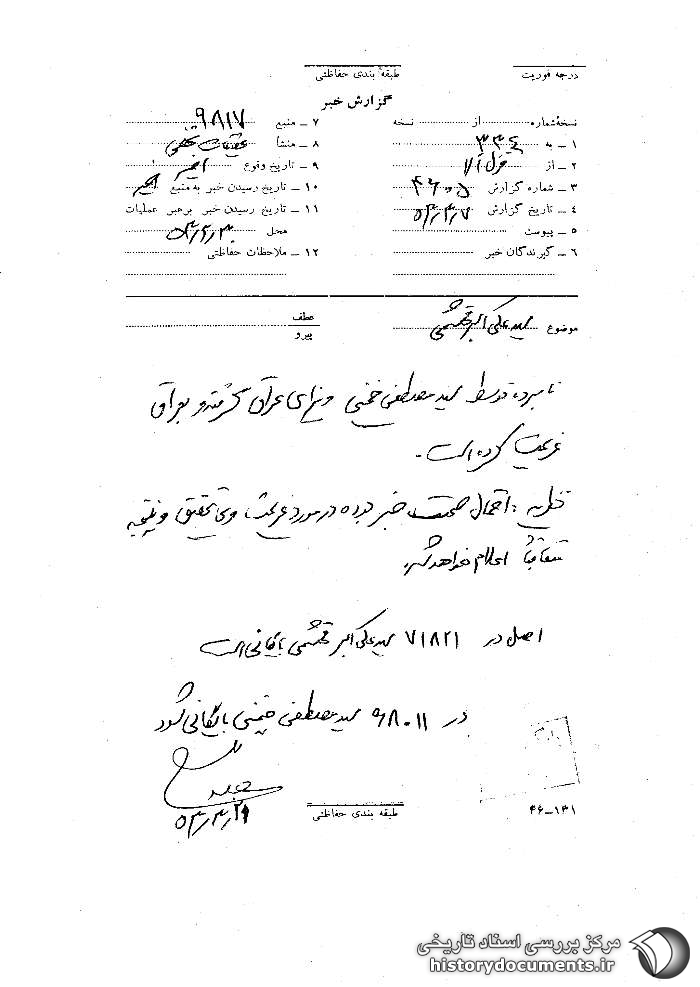 درجه فوریت
طبقه بندی حفاظتی
گزارش خبر
نسخه‌شماره از نسخه
۱ – به ۳۳۴
۲ – از قزل آلا
۳ – شماره گزارش ۴۶۰۵
۴ – تاریخ گزارش ۵۳/۳/۷
۵ – پیوست
۶ – گیرندگان خبر
۷ – منبع ۹۸۱۷
۸ – منشأ
۹ – تاریخ وقوع اخیر
۱۰ – تاریخ رسیدن خبر به منبع اخیر
۱۱ – تاریخ رسیدن خبر برهبر عملیات
محل ۵۳/۲/۳۰
۱۲ – ملاحظات حفاظتی
موضوع سید علی اکبر محتشمی
عطف
پیرو
نامبرده توسط سید مصطفی خمینی ویزای عراق گرفته و بعراق
عزیمت کرده است.
نظریه: احتمال صحت خبر بوده در مورد عزیمت وی تحقیق و نتیجه
متعاقباً اعلام خواهد شد.
اصل در ۷۱۸۲۱ سید علی اکبر محتشمی بایگانی است
در ۹۸۰۱۱ سید مصطفی خمینی بایگانی شود
۵۳/۳/۲۹
طبقه بندی حفاظتی
۴۶–۱۳۱
مرکز بررسی اسناد تاریخی
historydocuments.ir